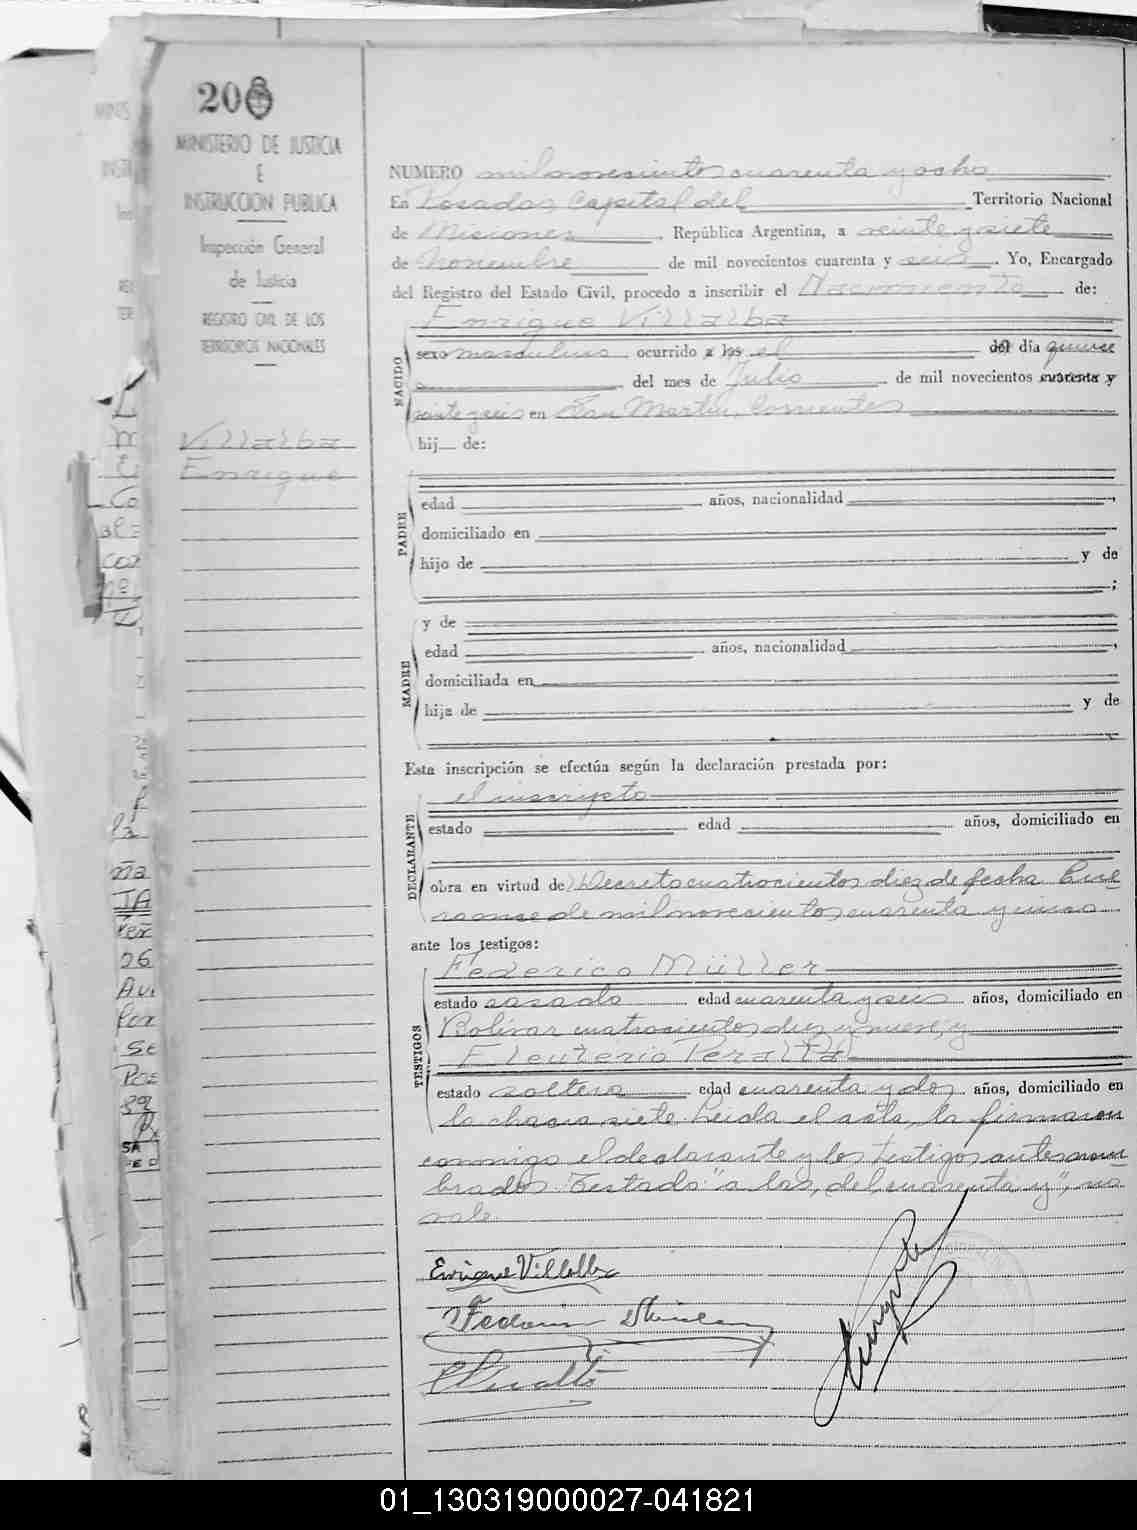 20
MINISTERIO DE JUSTICIA
E
INSTRUCCION PUBLICA
Inspección General
de Justicia
REGISTRO CIVIL DE LOS
TERRITORIOS NACIONALES
Villalba
Enrique
NUMERO milnovecientos cuarenta y ocho
En Posadas Capital del Territorio Nacional
de Misiones República Argentina, a veinte y siete
de Noviembre de mil novecientos cuarenta y seis. Yo, Encargado
del Registro del Estado Civil, procedo a inscribir el Nacimiento de:
NACIDO
Enrique Villalba
sexo masculino ocurrido a las el del día quince
del mes de Julio de mil novecientos cuarenta y
veinte y seis en San Martin, Corrientes
hij de:
PADRE
edad años, nacionalidad ,
domiciliado en
hijo de y de
;
MADRE
y de
edad años, nacionalidad ,
domiciliada en
hija de y de
Esta inscripción se efectúa según la declaración prestada por:
DECLARANTE
el inscripto
estado edad años, domiciliado en
obra en virtud de Decreto cuatrocientos diez de fecha
de milnovecientos cuarenta y
ante los testigos:
TESTIGOS
Federico Müller
estado casado edad cuarenta y seis años, domiciliado en
Bolívar cuatrocientos diez y nueve, y
Eleuterio Peralta
estado soltero edad cuarenta y dos años, domiciliado en
la chacra siete Leída el acta, la firmaron
conmigo el declarante y los testigos antesnom-
brados. Testado "a las, del, cuarenta y", no
vale.
Enrique Villalba
01_130319000027-041821